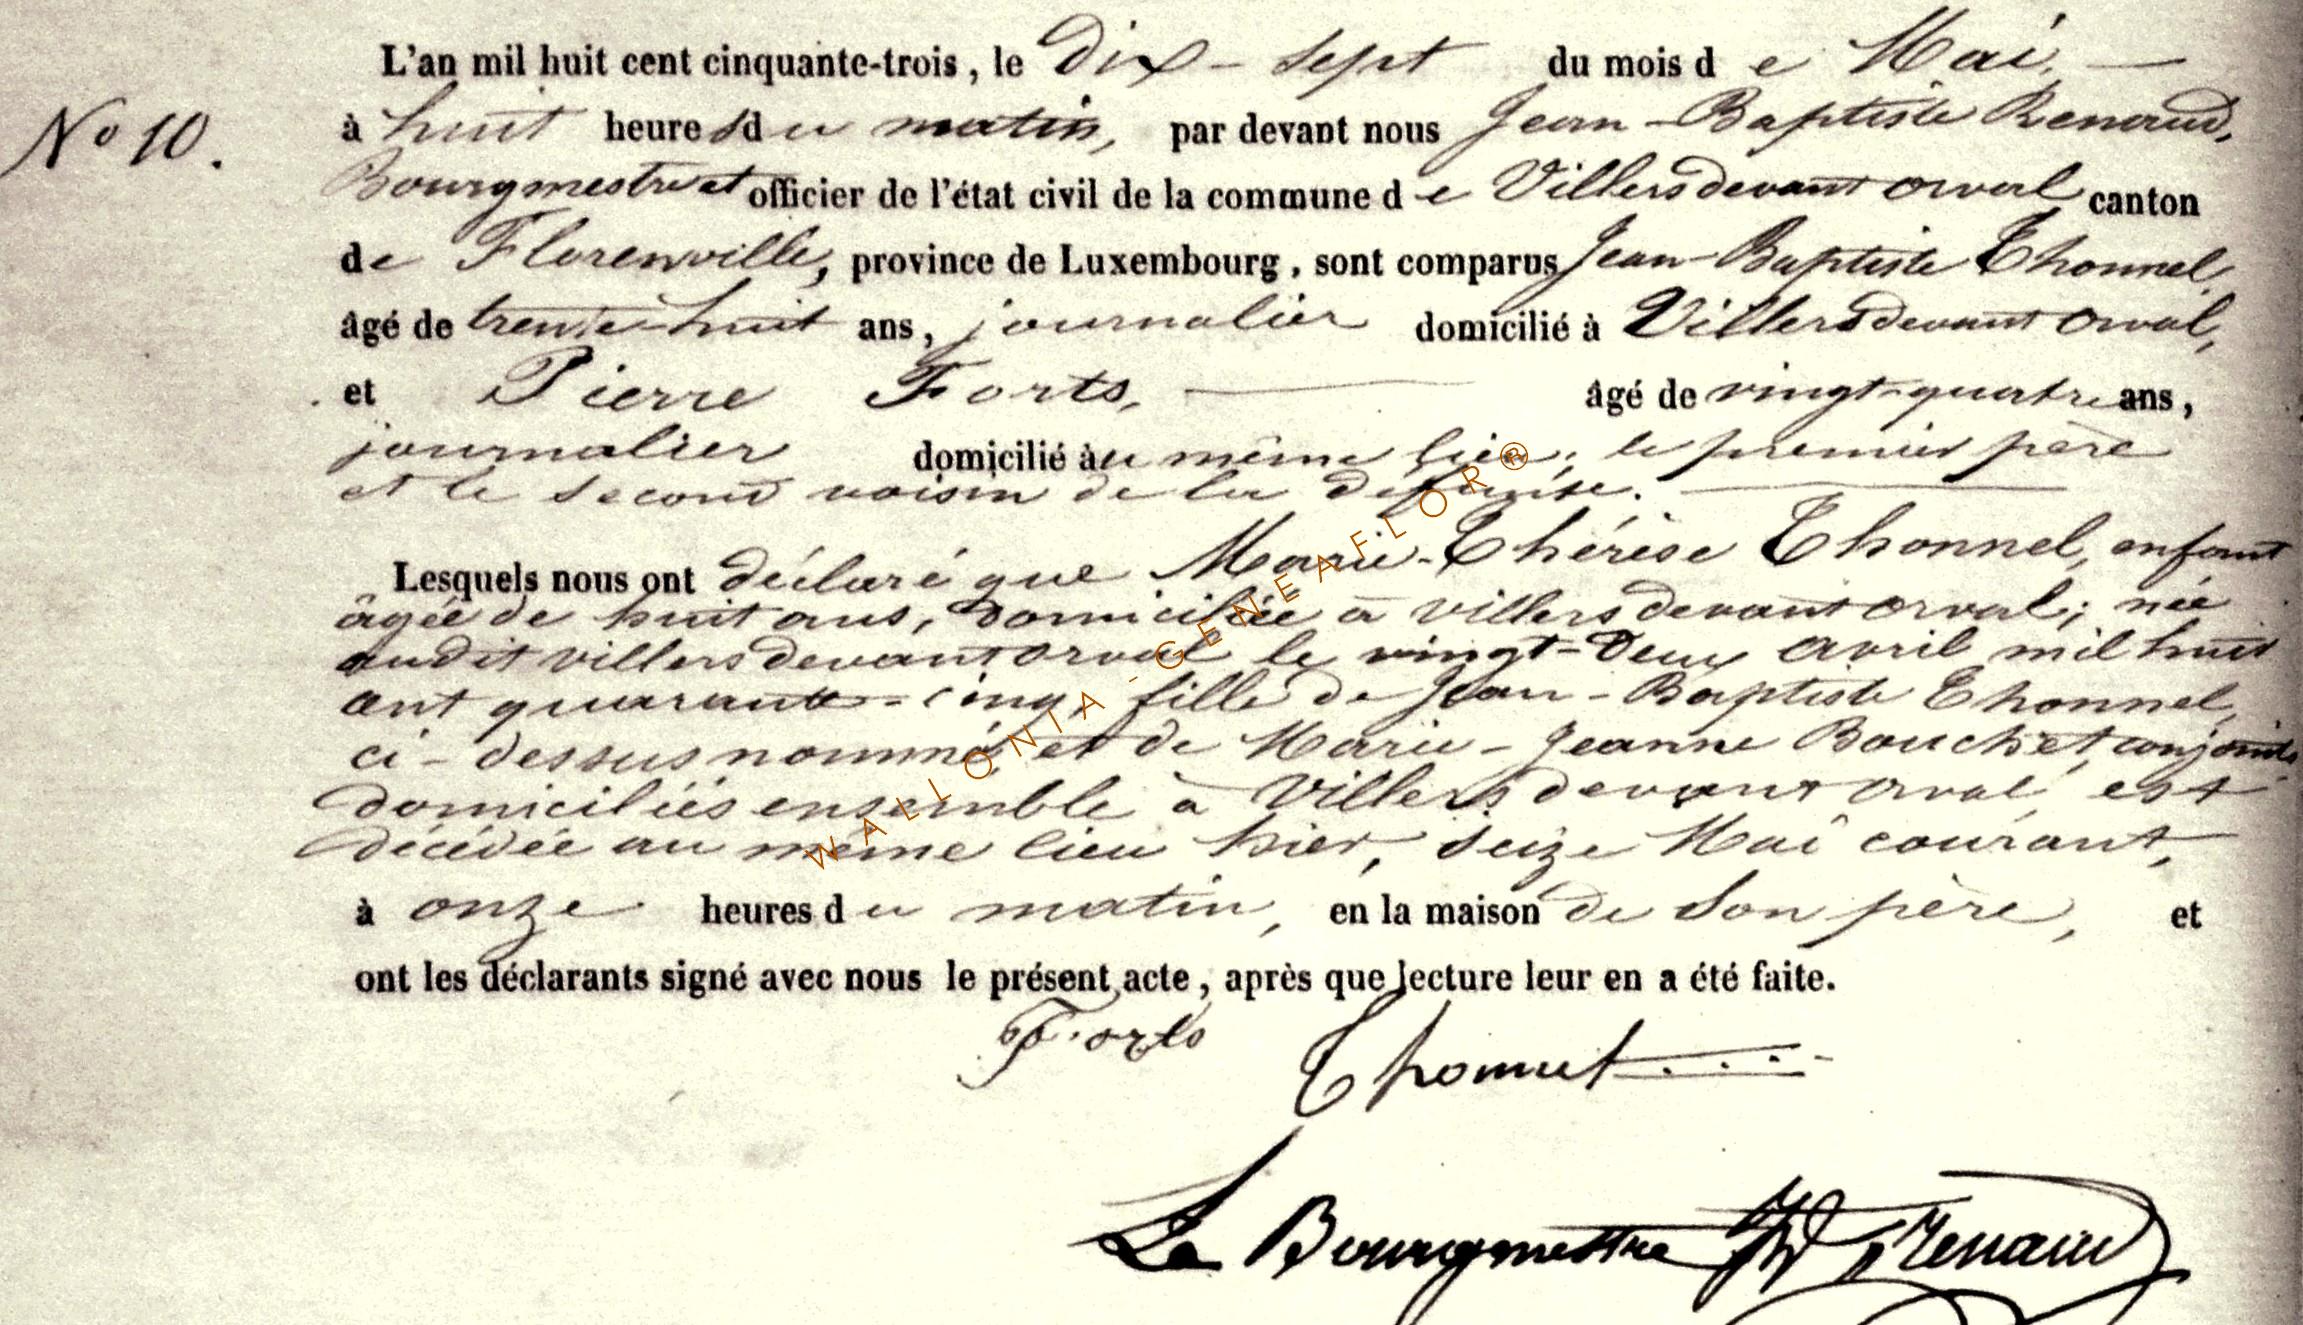 L'an mil huit cent cinquante-trois, le Dix-sept du mois de Mai,
No 10.
à huit heures du matin, par devant nous Jean-Baptiste Renaud,
Bourgmestre et officier de l'état civil de la commune de Villers devant orval canton
de Florenville, province de Luxembourg, sont comparus Jean-Baptiste Thonnel,
âgé de trente-huit ans, journalier domicilié à Villers devant orval,
et Pierre Forts, âgé de vingt-quatre ans,
journalier domicilié au même lieu; le premier père
et le second voisin de la défunte.
Lesquels nous ont déclaré que Marie-Thérèse Thonnel, enfant
âgée de huit ans, domiciliée à villers devant orval; née
audit villers devant orval le vingt-deux avril mil huit
cent quarante-cinq, fille de Jean-Baptiste Thonnel,
ci-dessus nommé, et de Marie-Jeanne Bouchet, conjoints
domiciliés ensemble à Villers devant orval, est
décédée au même lieu hier, seize Mai courant,
à onze heures du matin, en la maison de son père, et
ont les déclarants signé avec nous le présent acte, après que lecture leur en a été faite.
Forts
Le Bourgmestre Renaud
WALLONIA-GENEAFLOR®